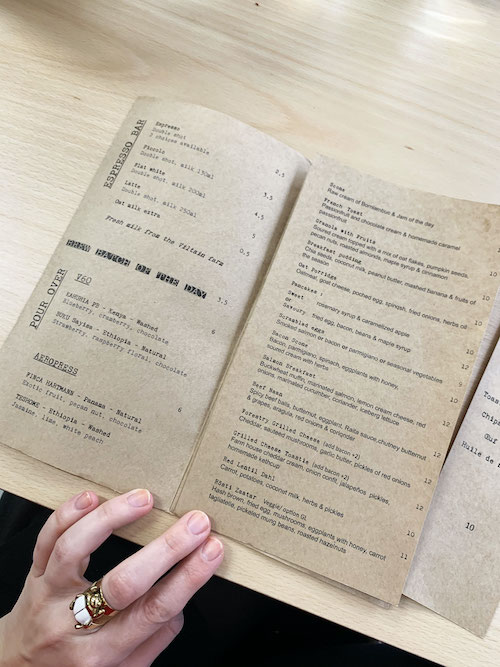 ESPRESSO BAR
Espresso
Double shot
2 choices available
2,5
Piccolo
Double shot, milk 130ml
3,5
Flat white
Double shot, milk 200ml
4,5
Latte
Double shot, milk 250ml
5
Oat milk extra
0,5
Fresh milk from the Viltain farm
BREW BATCH OF THE DAY
3,5
POUR OVER
V60
6
KARUHIA PB - Kenya - Washed
Blueberry, cranberry, chocolate
BUKU Sayisa - Ethiopia - Natural
Strawberry, raspberry floral, chocolate
AEROPRESS
6
FINCA HARTMANN - Panama - Natural
Exotic fruit, pecan nut, chocolate
TESHOME - Ethiopia - Washed
Jasmine, lime, white peach
Scone
Raw cream of Borniambuc & Jam of the day
French Toast
Passionfruit and chocolate cream & homemade caramel
passionfruit
Granola with Fruits
Soured cream topped with a mix of oat flakes, pumpkin seeds,
pecan nuts, roasted almonds, maple syrup & cinnamon
Breakfast pudding
Chia seeds, coconut milk, peanut butter, mashed banana & fruits of
the season
Oat Porridge
Oatmeal, goat cheese, poched egg, spinash, fried onions, herbs oil
10
Pancakes
Sweet rosemary syrup & caramelized apple
or
Savoury fried egg, bacon, beans & maple syrup
Scrambled eggs
Smoked salmon or bacon or parmigiano or seasonal vegetables
Bacon Scone
Bacon, parmigiano, spinach, eggplants with honey,
soured cream with herbs
Salmon Breakfast
Buckwheat muffin, marinated salmon, lemon cream cheese, red
onions, marinated cucumber, coriander, iceberg lettuce
12
Beef Nana
Spicy beef naan, butternut, eggplant, Raita sauce, chutney butternut
& grapes, arugula, red onions & coriander
12
Forestry Grilled Cheese (add bacon +2)
Cheddar, sauteed mushrooms, garlic butter, pickles of red onions
12
Grilled Cheese Toastie (add bacon +2)
Farm house cheddar cream, onion confit, jalapeños pickles,
homemade ketchup
12
Red Lentil Dahl
Carrot, potatoes, coconut milk, herbs & pickles
10
Rösti Zaatar veggie/ option GL
Hash brown, fried egg, mushrooms, eggplants with honey, carrot
tagliatelle, pickeled mung beans, roasted hazelnuts
11
Toas
Chips
Huile de
10